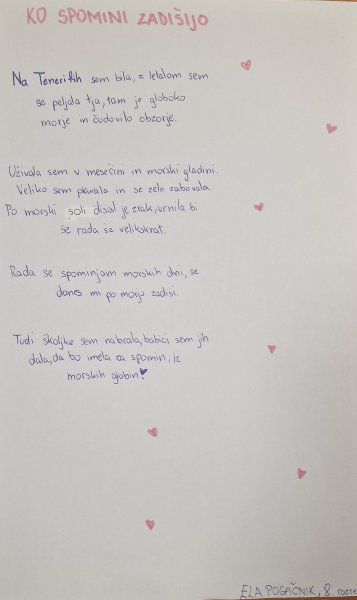 KO SPOMINI ZADIŠIJO
Na Tenerifih sem bila, z letalom sem
se peljala tja, tam je globoko
morje in čudovito obzorje.
Uživala sem v mesečini in morski gladini.
Veliko sem plavala in se zelo zabavala.
Po morski soli dišal je zrak, vrnila bi
se rada še velikokrat.
Rada se spominjam morskih dni, še
danes mi po morju zadiši.
Tudi školjke sem nabrala, babici sem jih
dala, da bo imela za spomin, iz
morskih globin!
ELA POGAČNIK, 8.